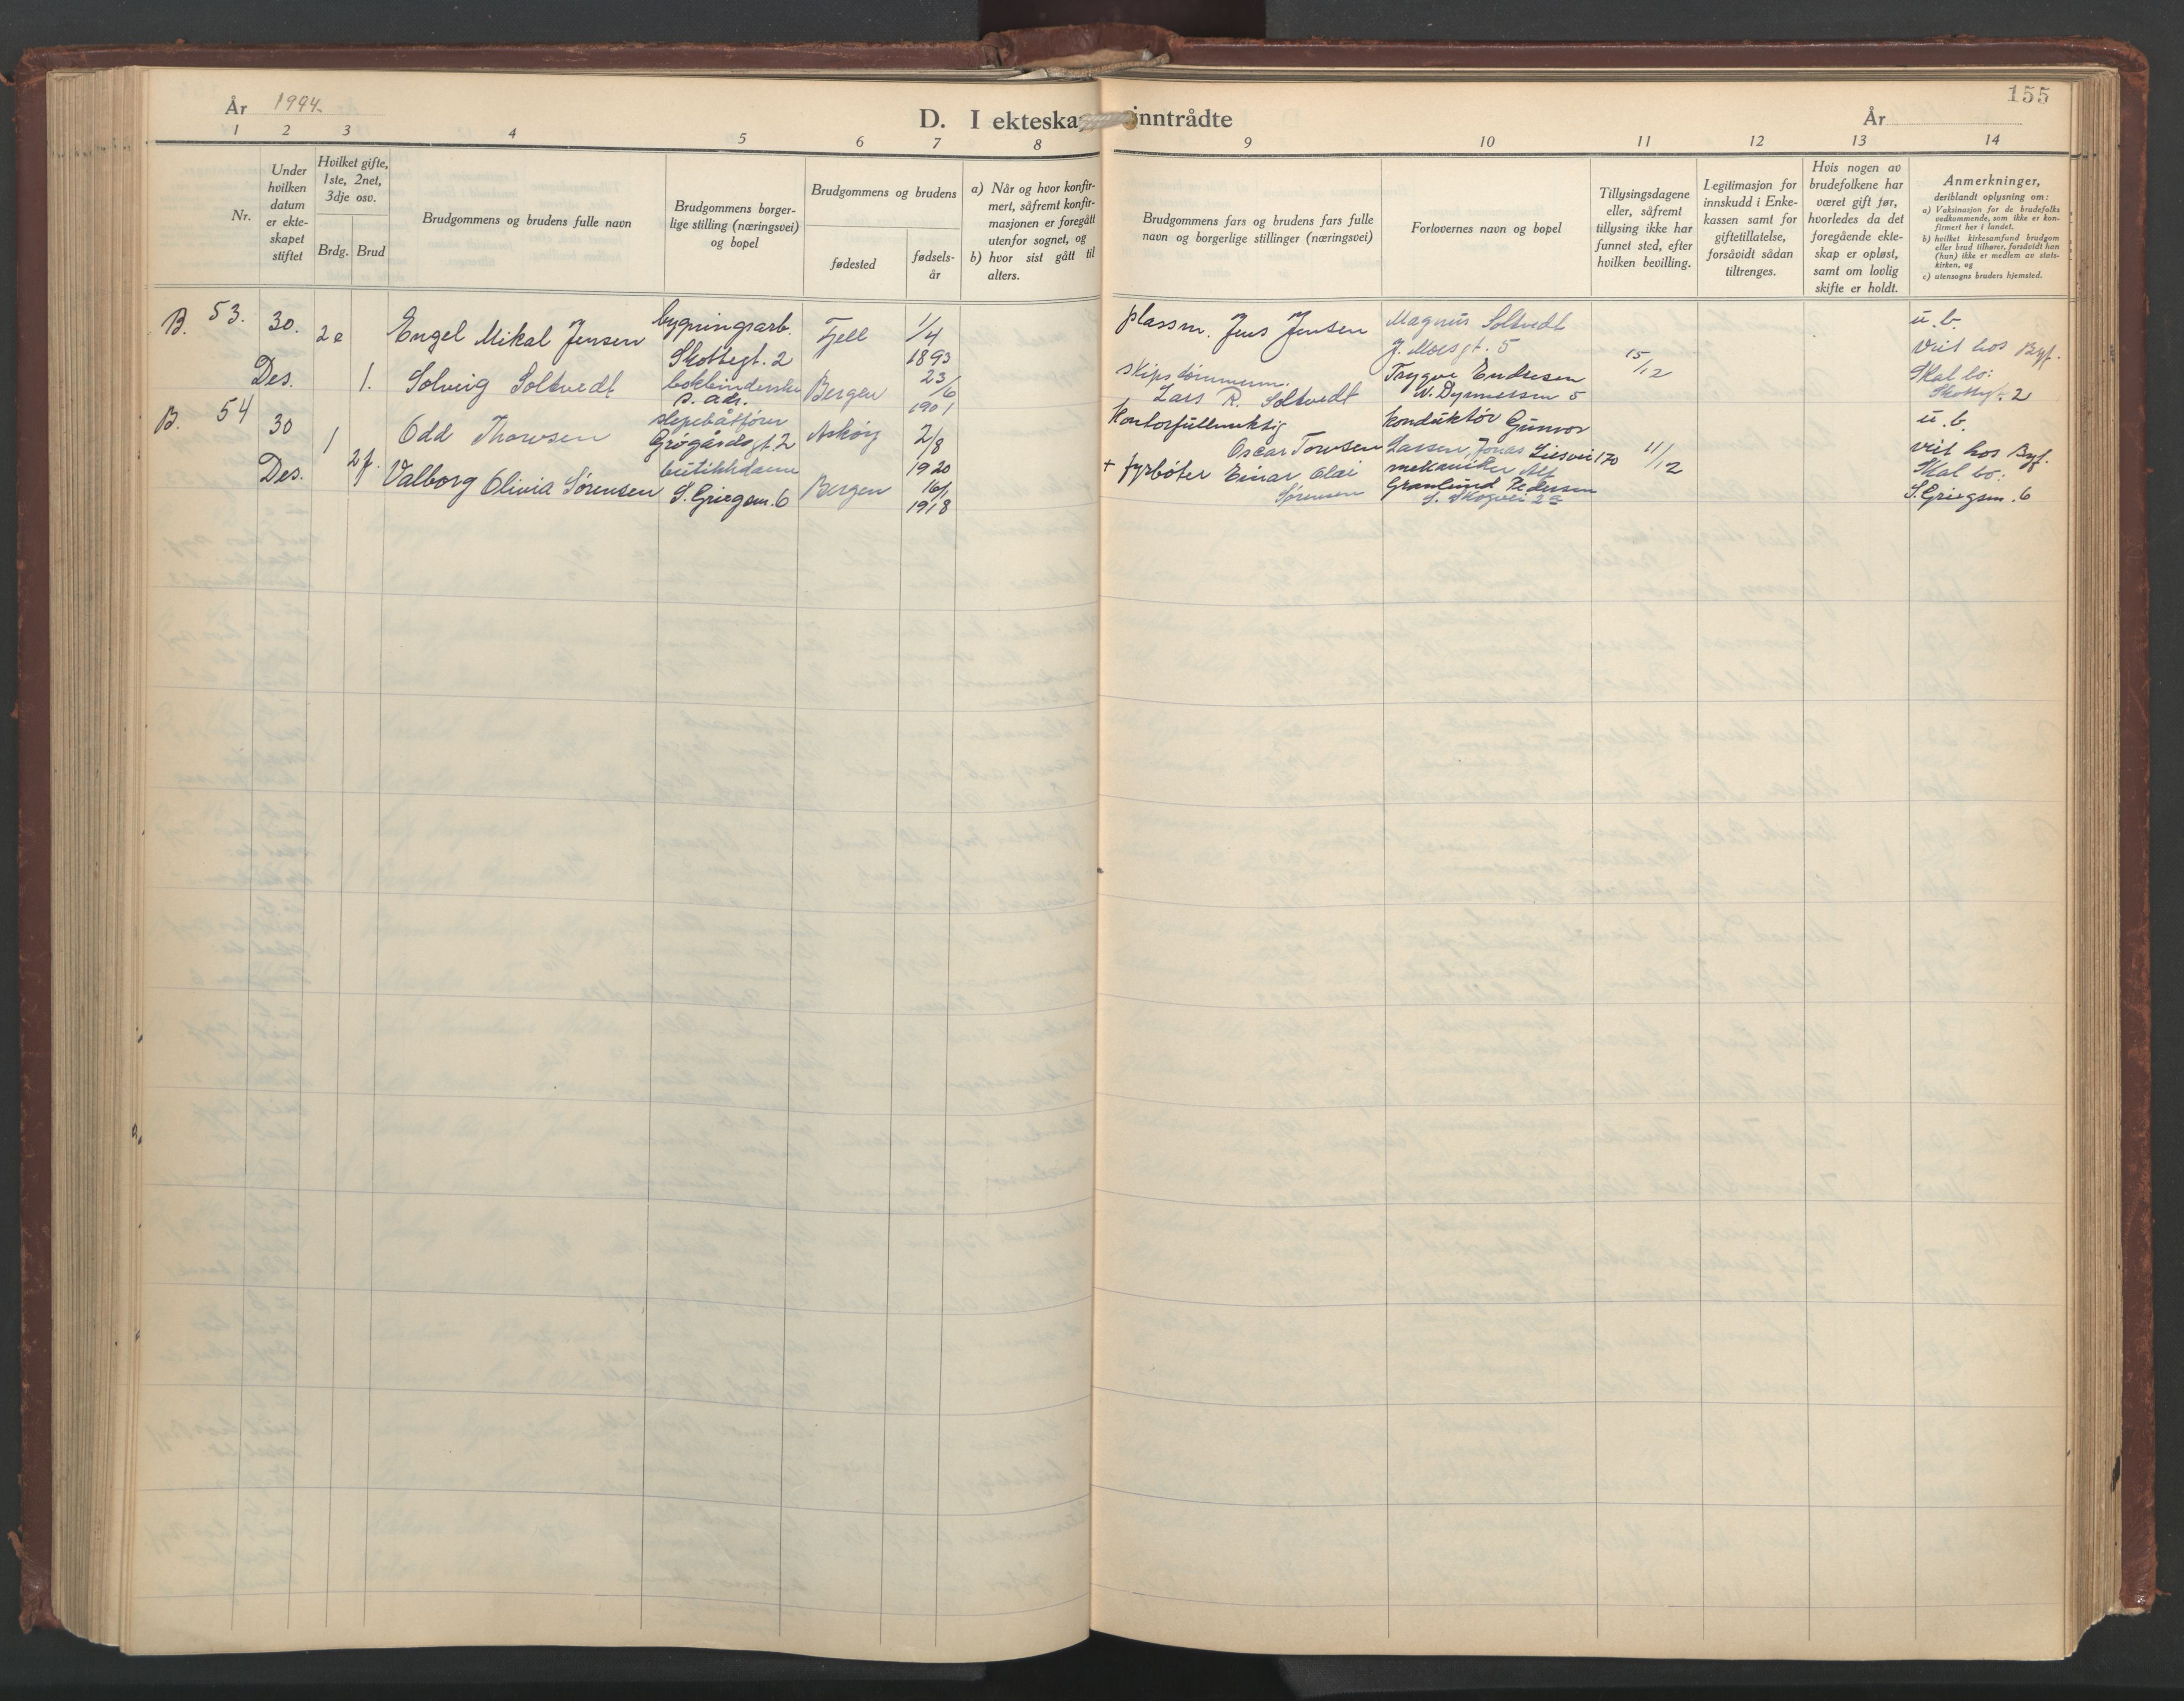 155
År 1944.
D. I ekteska inntrådte
År
1 2 3 4 5 6 7 8 9 10 11 12 13 14
Nr.
Under
hvilken
datum
er ekte-
skapet
stiftet
Hvilket gifte,
1ste, 2net,
3dje osv.
Brdg. Brud
Brudgommens og brudens fulle navn
Brudgommens borger-
lige stilling (næringsvei)
og bopel
Brudgommens og brudens
fødested
fødsels-
år
a) Når og hvor konfir-
mert, såfremt konfir-
masjonen er foregått
utenfor sognet, og
b) hvor sist gått til
alters.
Brudgommens fars og brudens fars fulle
navn og borgerlige stillinger (næringsvei)
Forlovernes navn og bopel
Tillysingsdagene
eller, såfremt
tillysing ikke har
funnet sted, efter
hvilken bevilling.
Legitimasjon for
innskudd i Enke-
kassen samt for
giftetillatelse,
forsåvidt sådan
tiltrenges.
Hvis nogen av
brudefolkene har
været gift før,
hvorledes da det
foregående ekte-
skap er opløst,
samt om lovlig
skifte er holdt.
Anmerkninger,
deriblandt oplysning om:
a) Vaksinasjon for de brudefolks
vedkommende, som ikke er kon-
firmert her i landet.
b) hvilket kirkesamfund brudgom
eller brud tilhører, forsåvidt han
(hun) ikke er medlem av stats-
kirken, og
c) utensogns bruders hjemsted.
B. 53.
30.
Des.
2e
1.
Engel Mikal Jensen
Solveig Soltvedt
bygningsarb.
Skottegt. 2
bokbinderske
s. adr.
Fjell
Bergen
1/4
1893
23/6
1901
plassm. Jens Jensen
skipstømmerm.
Lars R. Soltvedt
Magnus Soltvedt
J. Moesgt. 5
Trygve Endresen
5
15/12
u. b.
Viet hos Byf.
Skal bo:
Skottegt. 2
B. 54
30
Des.
1
2f.
Odd Thowsen
Valborg Olivia Sørensen
slepebåtfører
2
butikkdame
S. Griegsm. 6
Askøy
Bergen
2/8
1920
16/1
1918
kontorfullmektig
Oscar Towsen
+ fyrbøter Einar Olai
Sørensen
konduktør Gunvor
Lassen, Jonas Liesvei 170
mekaniker Alf
Granlund Pedersen
S. Skogvei 2a
11/12
u. b.
viet hos Byf.
Skal bo:
S. Griegsm. 6